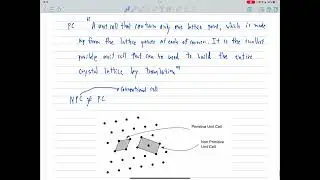 PC " A unit cell that contains only one lattice point, which is made
up from the lattice points at each of corners. It is the smallest
possible unit cell that can be used to build the entire
crystal lattice by translation"
Conventional cell
NPC ≠ PC
Primitive Unit Cell
Non Primitive
Unit Cell